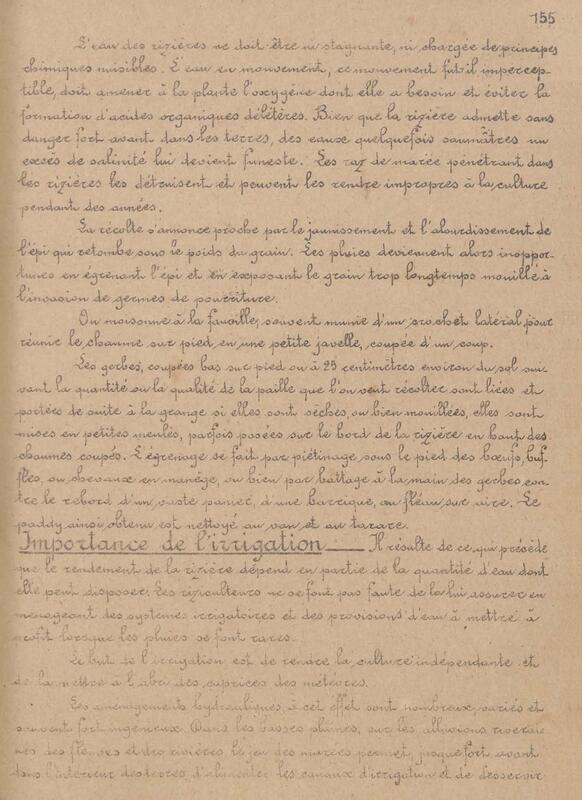 155
L'eau des rizières ne doit être ni stagnante, ni chargée de principes
chimiques nuisibles. L'eau en mouvement, ce mouvement fut-il impercep-
tible, doit amener à la plante l'oxygène dont elle a besoin et éviter la
formation d'acides organiques délétères. Bien que la rizière admette sans
danger fort avant dans les terres, des eaux quelquefois saumâtres un
excès de salinité lui devient funeste. Les raz de marée pénétrant dans
les rizières les détruisent et peuvent les rendre impropres à la culture
pendant des années.
La récolte s'annonce proche par le jaunissement et l'alourdissement de
l'épi qui retombe sous le poids du grain. Les pluies deviennent alors inoppor-
tunes en égrenant l'épi et en exposant le grain trop longtemps mouillé à
l'invasion de germes de pourriture.
On moissonne à la faucille, souvent munie d'un crochet latéral, pour
réunir le chaume sur pied en une petite javelle, coupée d'un coup.
Les gerbes, coupées bas sur pied ou à 25 centimètres environ du sol sui-
vant la quantité ou la qualité de la paille que l'on veut récolter sont liées et
portées de suite à la grange si elles sont sèches, ou bien mouillées, elles sont
mises en petites meules, parfois posées sur le bord de la rizière en haut des
chaumes coupés. L'égrenage se fait par piétinage sous le pied des bœufs, buf-
fles, ou chevaux en manège, ou bien par battage à la main des gerbes con-
tre le rebord d'un vaste panier, d'une barrique, au fléau sur aire. Le
paddy ainsi obtenu est nettoyé au van et au tarare.
Importance de l'irrigation ___ Il résulte de ce qui précède
que le rendement de la rizière dépend en partie de la quantité d'eau dont
elle peut disposer. Les riziculteurs ne se font pas faute de la lui assurer en
menageant des systèmes irrigatoires et des provisions d'eau à mettre à
profit lorsque les pluies se font rares.
Le but de l'irrigation est de rendre la culture indépendante et
de la mettre à l'abri des caprices des météores.
Les aménagements hydrauliques, à cet effet sont nombreux, variés et
souvent fort ingénieux. Dans les basses plaines, sur les alluvions riverai-
nes des fleuves et des rivières le jeu des marées permet, jusque fort avant
dans l'intérieur des terres, d'alimenter les canaux d'irrigation et de desservir